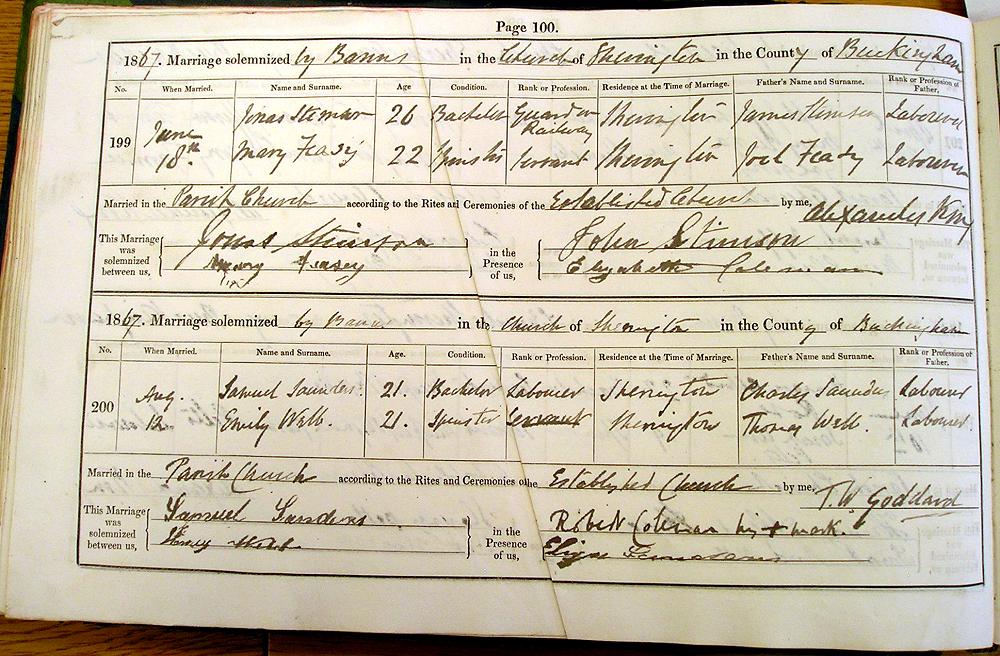 Page 100.
1867. Marriage solemnized by Banns in the Church of Sherington in the County of Buckingham
No. When Married. Name and Surname. Age Condition. Rank or Profession. Residence at the Time of Marriage. Father's Name and Surname. Rank or Profession of Father.
199 June 18th Jonas Stimson 26 Bachelor Guard on Railway Sherington James Stimson Labourer
Mary Feasy 22 Spinster Servant Sherington Joel Feasy Labourer
Married in the Parish Church according to the Rites and Ceremonies of the Established Church by me, Alexander King
This Marriage was solemnized between us, Jonas Stimson in the Presence of us, John Stimson
Mary Feasey Elizabeth Coleman
1867. Marriage solemnized by Banns in the Church of Sherington in the County of Buckingham
No. When Married. Name and Surname. Age. Condition. Rank or Profession. Residence at the Time of Marriage. Father's Name and Surname. Rank or Profession of Father.
200 Aug. 12. Samuel Saunders. 21. Bachelor Labourer Sherington Charles Saunders Labourer
Emily Webb. 21. Spinster Servant Sherington Thomas Webb. Labourer.
Married in the Parish Church according to the Rites and Ceremonies of the Established Church by me, T. W. Goddard
This Marriage was solemnized between us, Samuel Sanders in the Presence of us, Robert Coleman his + mark.
Webb Eliza